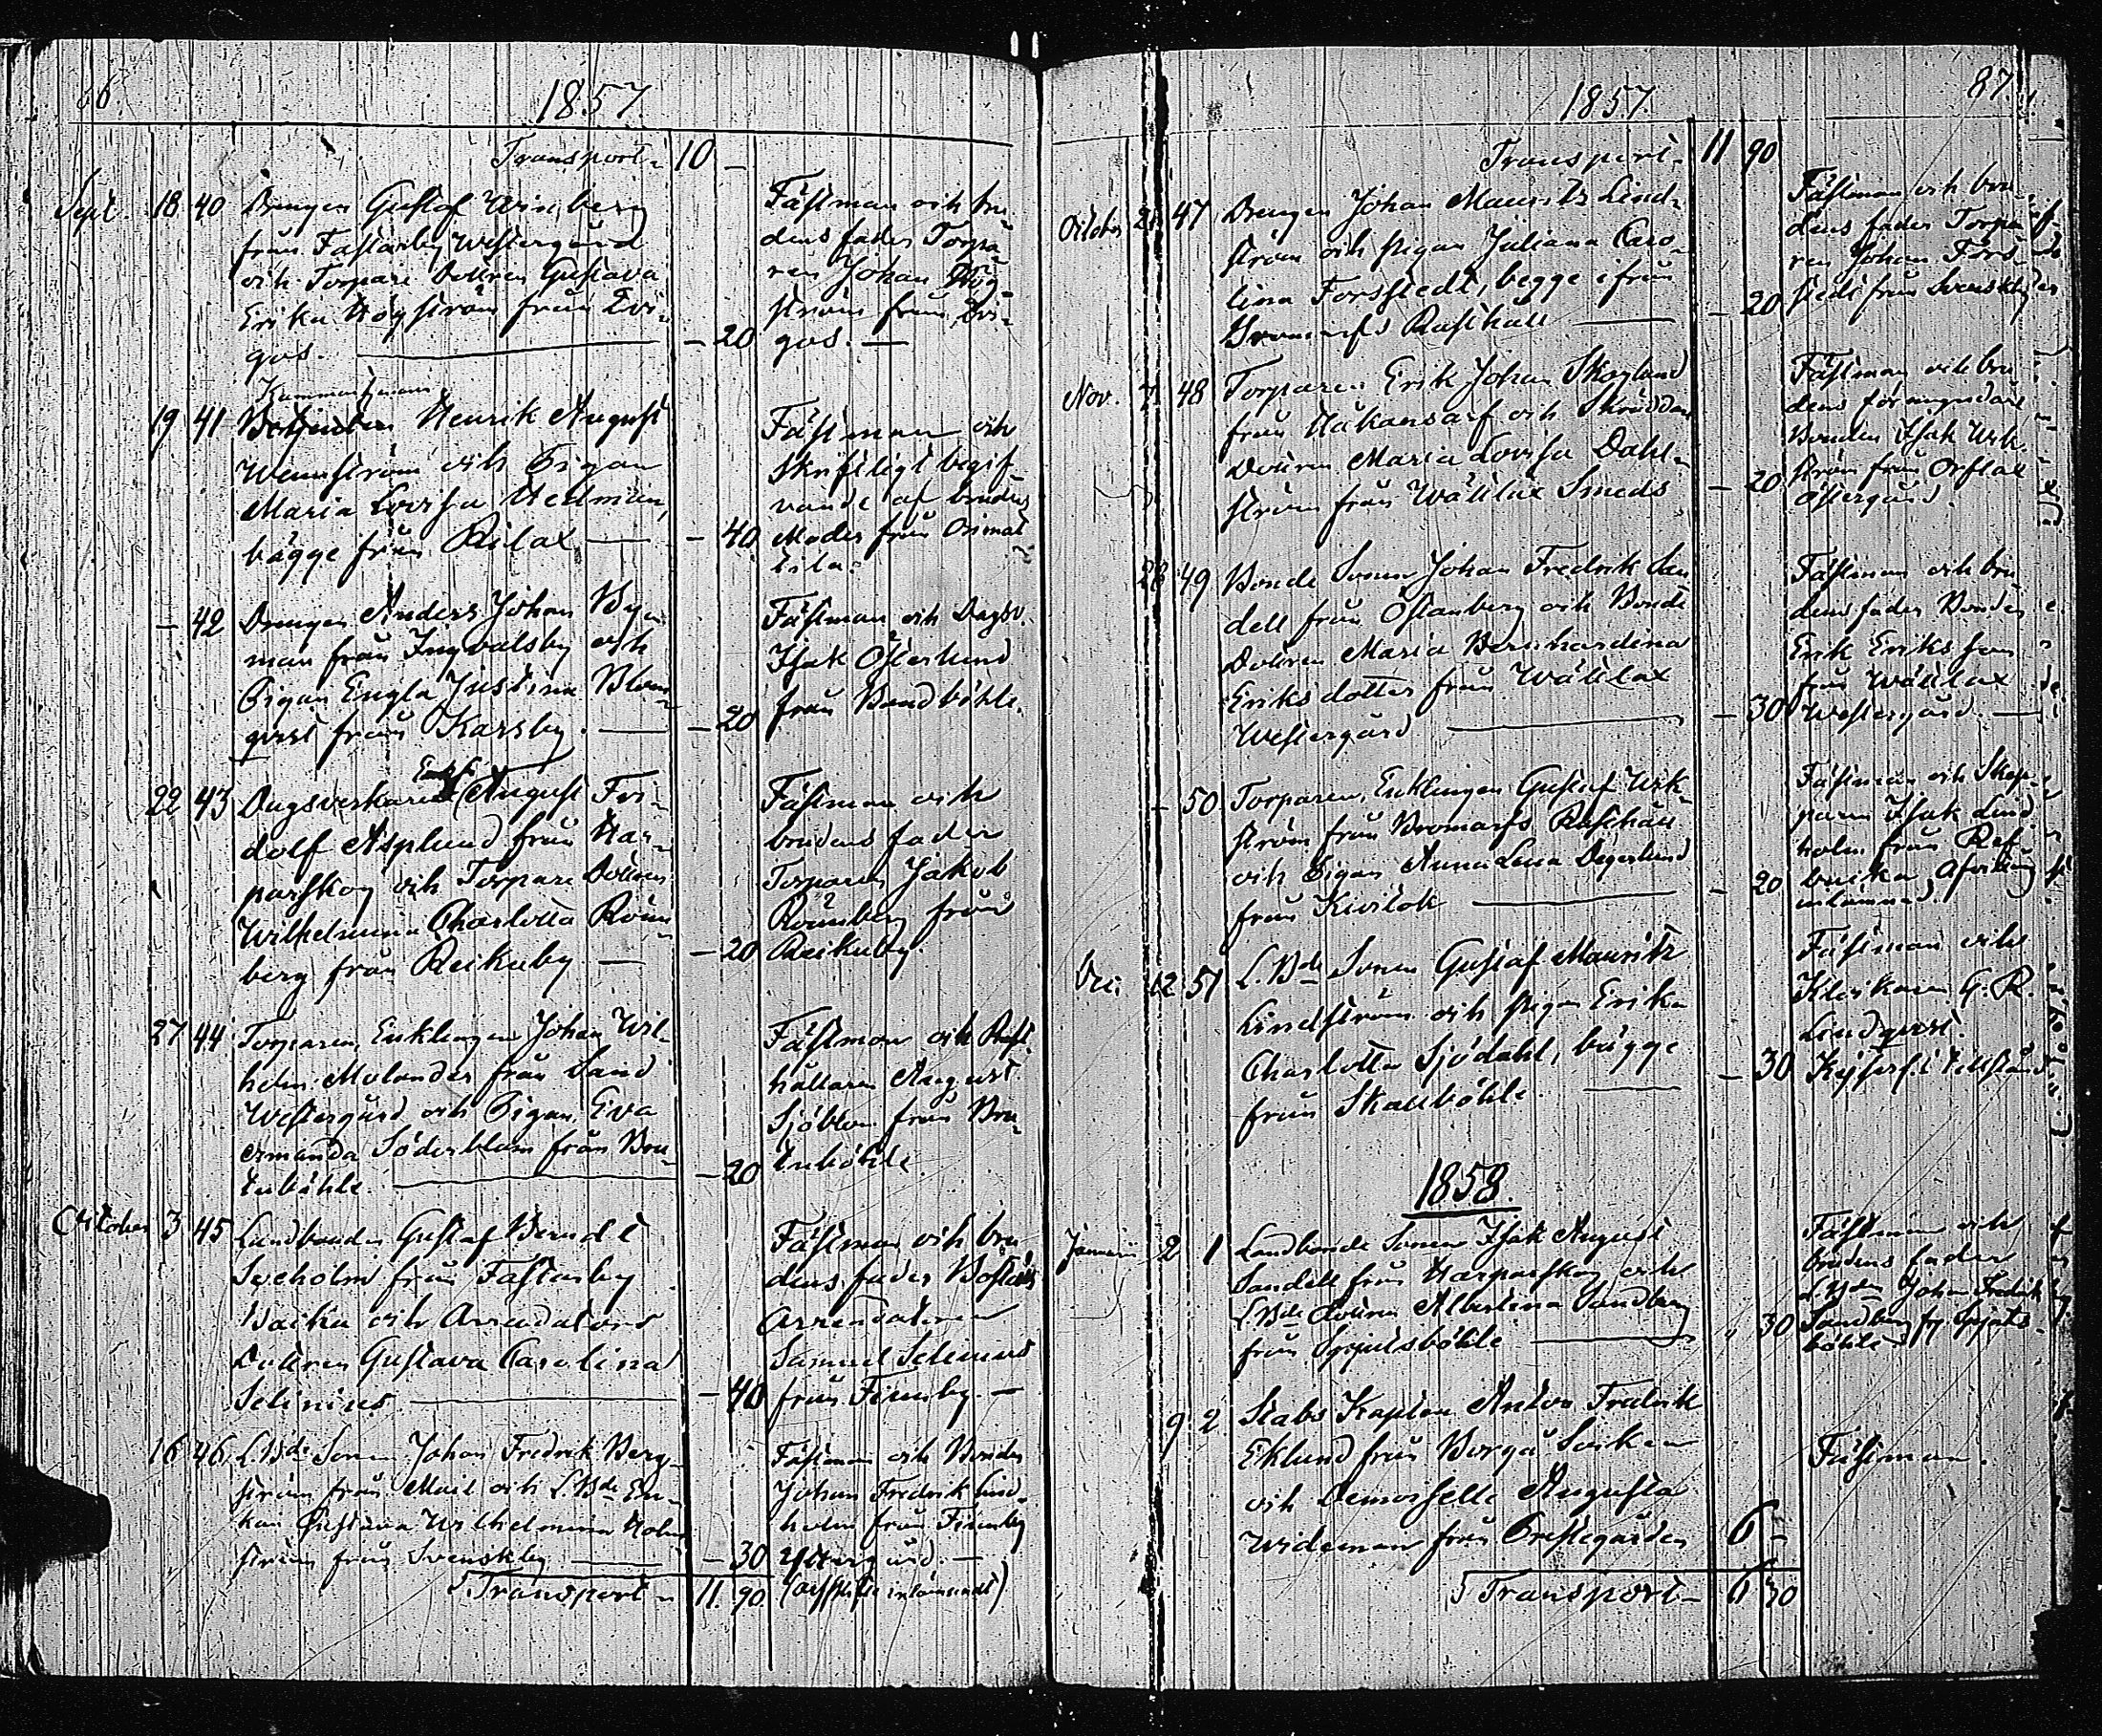 1857
Transport 10 –
Sept. 18 40 Drengen Gustaf Winberg
från Fastarby Westergård
och Torpare Dottren Gustava
Erika Högström från Tvi-
gos. – 20
Fästman och bru-
dens fader Torpa-
ren Johan Hög-
ström från Tvi-
gos. –
19 41 Henrik August
Wennström och Pigan
Maria Lovisa Hedman,
bägge från Rilax – 40
Fästman och
Skriftligt begif-
vande af brudens
Moder från Orimat-
tila.
– 42 Drengen Anders Johan By-
man från Ingvalsby och
Pigan Engla Justina Blom-
qvist från Karsby. – 20
Fästman och Dagsv.
Isak Österlund
från Bandböhle.
22 43 Dagsverkaren August Fri-
dolf Asplund från Har-
parskog och Torpare Dottren
Wilhelmina Charlotta Rönn-
berg från Reikuby – 20
Fästman och
brudens fader
Torparen Jakob
Rönnberg från
Reikuby.
27 44 Torparen, Enklingen Johan Wil-
helm Molander från Sand
Westergård och Pigan Eva
Armanda Söderblom från Bru-
tuböhle. – 20
Fästman och Rust-
hållaren August
Sjöblom från Bru-
tuböhle.
October 3 45 Landbonden Gustaf Berndt
från Fastarby
Backa och Arrendators
Dottren Gustava Carolina
Selinius – 40
Fästman och bru-
dens fader
Arrendatoren
Samuel Selinius
från Finnby. –
16 46 L.Bde Sonen Johan Fredrik Berg-
ström från och L.Bde En-
kan Gustava Wilhelmina Holm-
ström från Svenskby – 30
Fästman och Bonden
Johan Fredrik Lind-
holm från Finnby
Yttergård. –
Transport 11. 90
1857 87
Transport 11 90
October 21 47 Drengen Johan Mauritz Lind-
ström och pigan Juliana Caro-
lina Forsstedt, begge ifrån
Bromarfs Rusthåll – 20
Fästman och bru-
dens fader Torpa-
ren Johan Fors-
stedt från Svenskby
Nov. 7 48 Torparen Erik Johan Skoglund
från Håkansarf och Skräddare
Dottren Maria Lovisa Dahl-
ström från Wättlax Smeds – 20
Fästman och bru-
dens förmyndare
Bonden Isak Wik-
ström från Orslax
Östergård
28 49 Bonde Sonen Johan Fredrik San-
dell från Östanberg och Bonde
Dottren Maria Bernhardina
Eriksdotter från Wättlax
Westergård – 30
Fästman och bru-
dens fader Bonden
Erik Eriksson
från Wättlax
Westergård. –
– 50 Torparen, Enklingen Gustaf Wik-
ström från Bromarfs Rusthåll
och Pigan Anna Lena Degerlund
från Kivitok – 20
Fästman och Skep-
paren Isak Lind-
holm från Ref-
backa,
inlämnad.
Dec. 12 51 L.Bde Sonen Gustaf Mauritz
Lindström och pigan Erika
Charlotta Sjödahl, bägge
från Skallböhle. – 30
Fästman och
Klockaren G. R.
Lindqvist.
1858.
Januarii 2 1 Landbonde Sonen Isak August
Sandell från Harparskog och
L.Bde dottren Albertina Sandberg
från Spjutsböhle – 30
Fästman och
brudens fader
L.Bden Johan Fredrik
Sandberg fr. Spjuts-
böhle
9 2 Stabs Kapten Anton Fredrik
Eklund från Borgå Socken
och Demoiselle Augusta
Wideman från Prestegården 6 –
Fästman.
Transport – 6 30